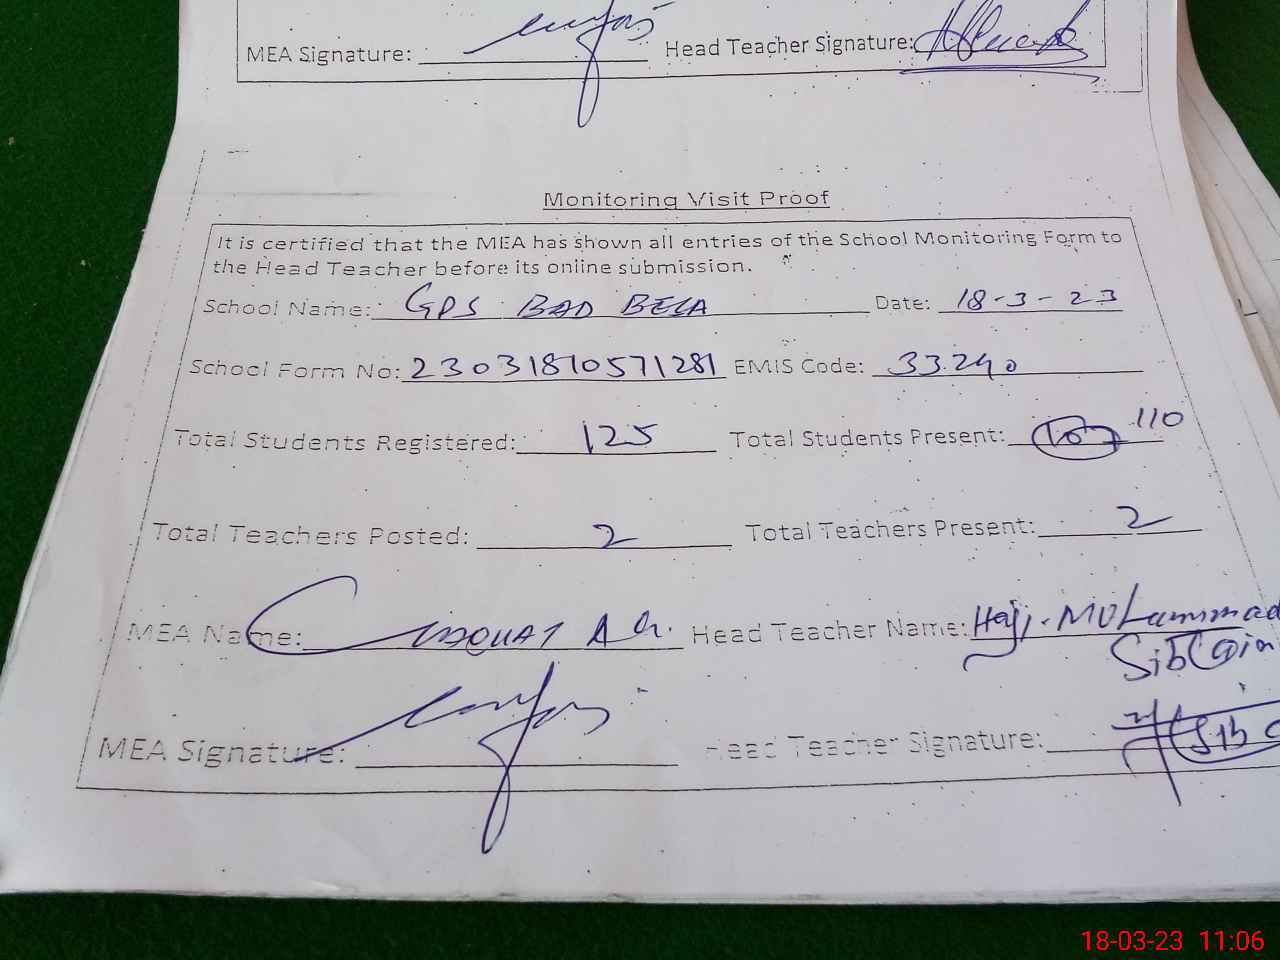 MEA Signature: Head Teacher Signature:
Monitoring Visit Proof
It is certified that the MEA has shown all entries of the School Monitoring Form to
the Head Teacher before its online submission.
School Name: GPS BAD BELA Date: 18-3-23
School Form No: 23031810571281 EMIS Code: 33240
Total Students Registered: 125 Total Students Present: 107 110
Total Teachers Posted: 2 Total Teachers Present: 2
MEA Name: Head Teacher Name: Haji. Mohammad
Sibtain
MEA Signature: Head Teacher Signature:
18-03-23 11:06